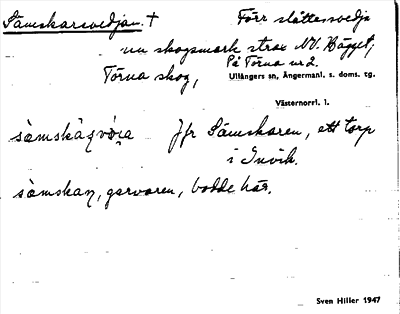 Sämskarsvedjan. † Förr slåttersvedja
nu skogsmark strax NV. Bägget,
På Törna nr 2.
Törna skog, Ullångers sn, Ångermanl. s. doms. tg.
Västernorrl. l.
Jfr Sämskaren, ett torp
i Invik.
sämskaṇ, garvaren, bodde här.
Sven Hiller 1947